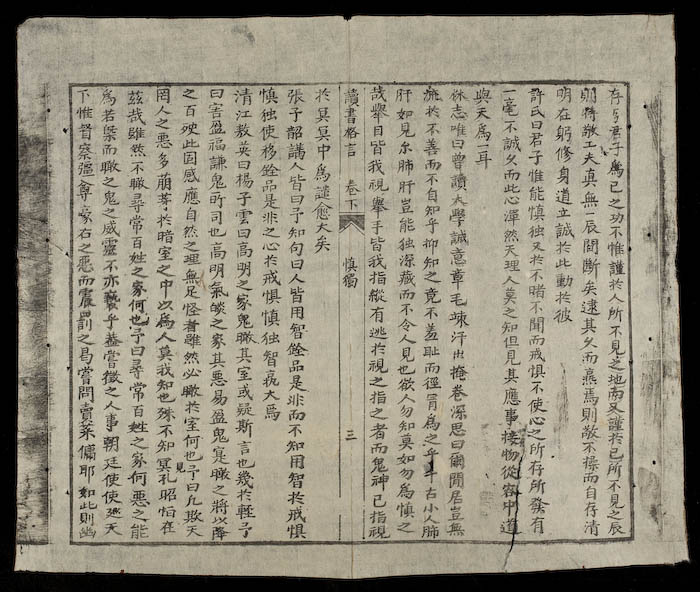 存乎君子為己之功不惟謹於人所不見之地而又謹於己所不見之辰
則持敬工夫真無一辰間斷矣逮其久而熹焉則敬不操而自存清
明在躬修身道立誠於此動於彼
許氏曰君子惟能慎独又於不睹不聞而戒惧不使心之所存所發有
一毫不誠久而此心渾然天理人莫之知但見其應事接物從容中道
與天為一耳
休志唯曰曾讀大學誠意章毛竦汗出掩卷深思曰爾閒居豈無
流於不善而不自知乎抑知之竟不羞耻而徑冐為之乎千古小人肺
肝如見尔肺肝豈能独深藏而不令人見也欲人勿知莫如勿為慎之
哉舉目皆我視舉手皆我指縱有逃於視之指之者而鬼神已指視
讀書格言 卷下 慎獨 三
於冥冥中為譴愈大矣
張子韶議人皆曰予知句曰人皆用智銓品是非而不知用智於戒惧
慎独使移銓品是非之心於戒惧慎独智孰大焉
清江敖英曰楊子雲曰高明之家鬼瞰其室或疑斯言也幾於輕予
曰害盈福謙鬼所司也高明氣燄之家其悪易盈鬼寔瞰之將以降
之百殃此固感應自然之理無足怪者雖然必瞰於室何也予曰凡欺天
罔人之悪多萠芽於暗室之中以為人莫我知也殊不知冥孔昭怕在
茲哉雖然不瞰尋常百姓之家何也予曰尋常百姓之家何悪之能
為若榘而瞰之鬼之威靈不亦褻乎蓋嘗徵之人事朝廷使使廵天
下惟督察彊尊豪右之悪而震罰之曷嘗問賣菜傭耶如此則幽